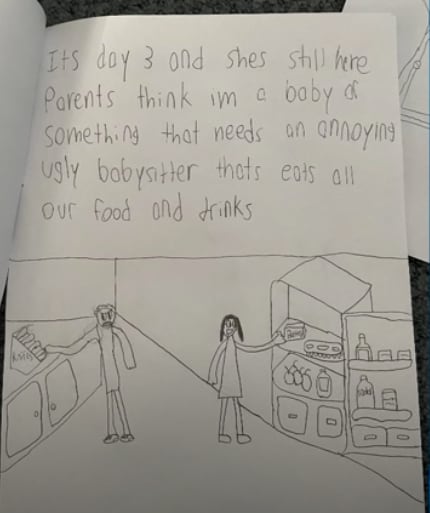 Its day 3 and shes still here
Parents think im a baby or
something that needs an annoying
ugly babysitter thats eats all
our food and drinks